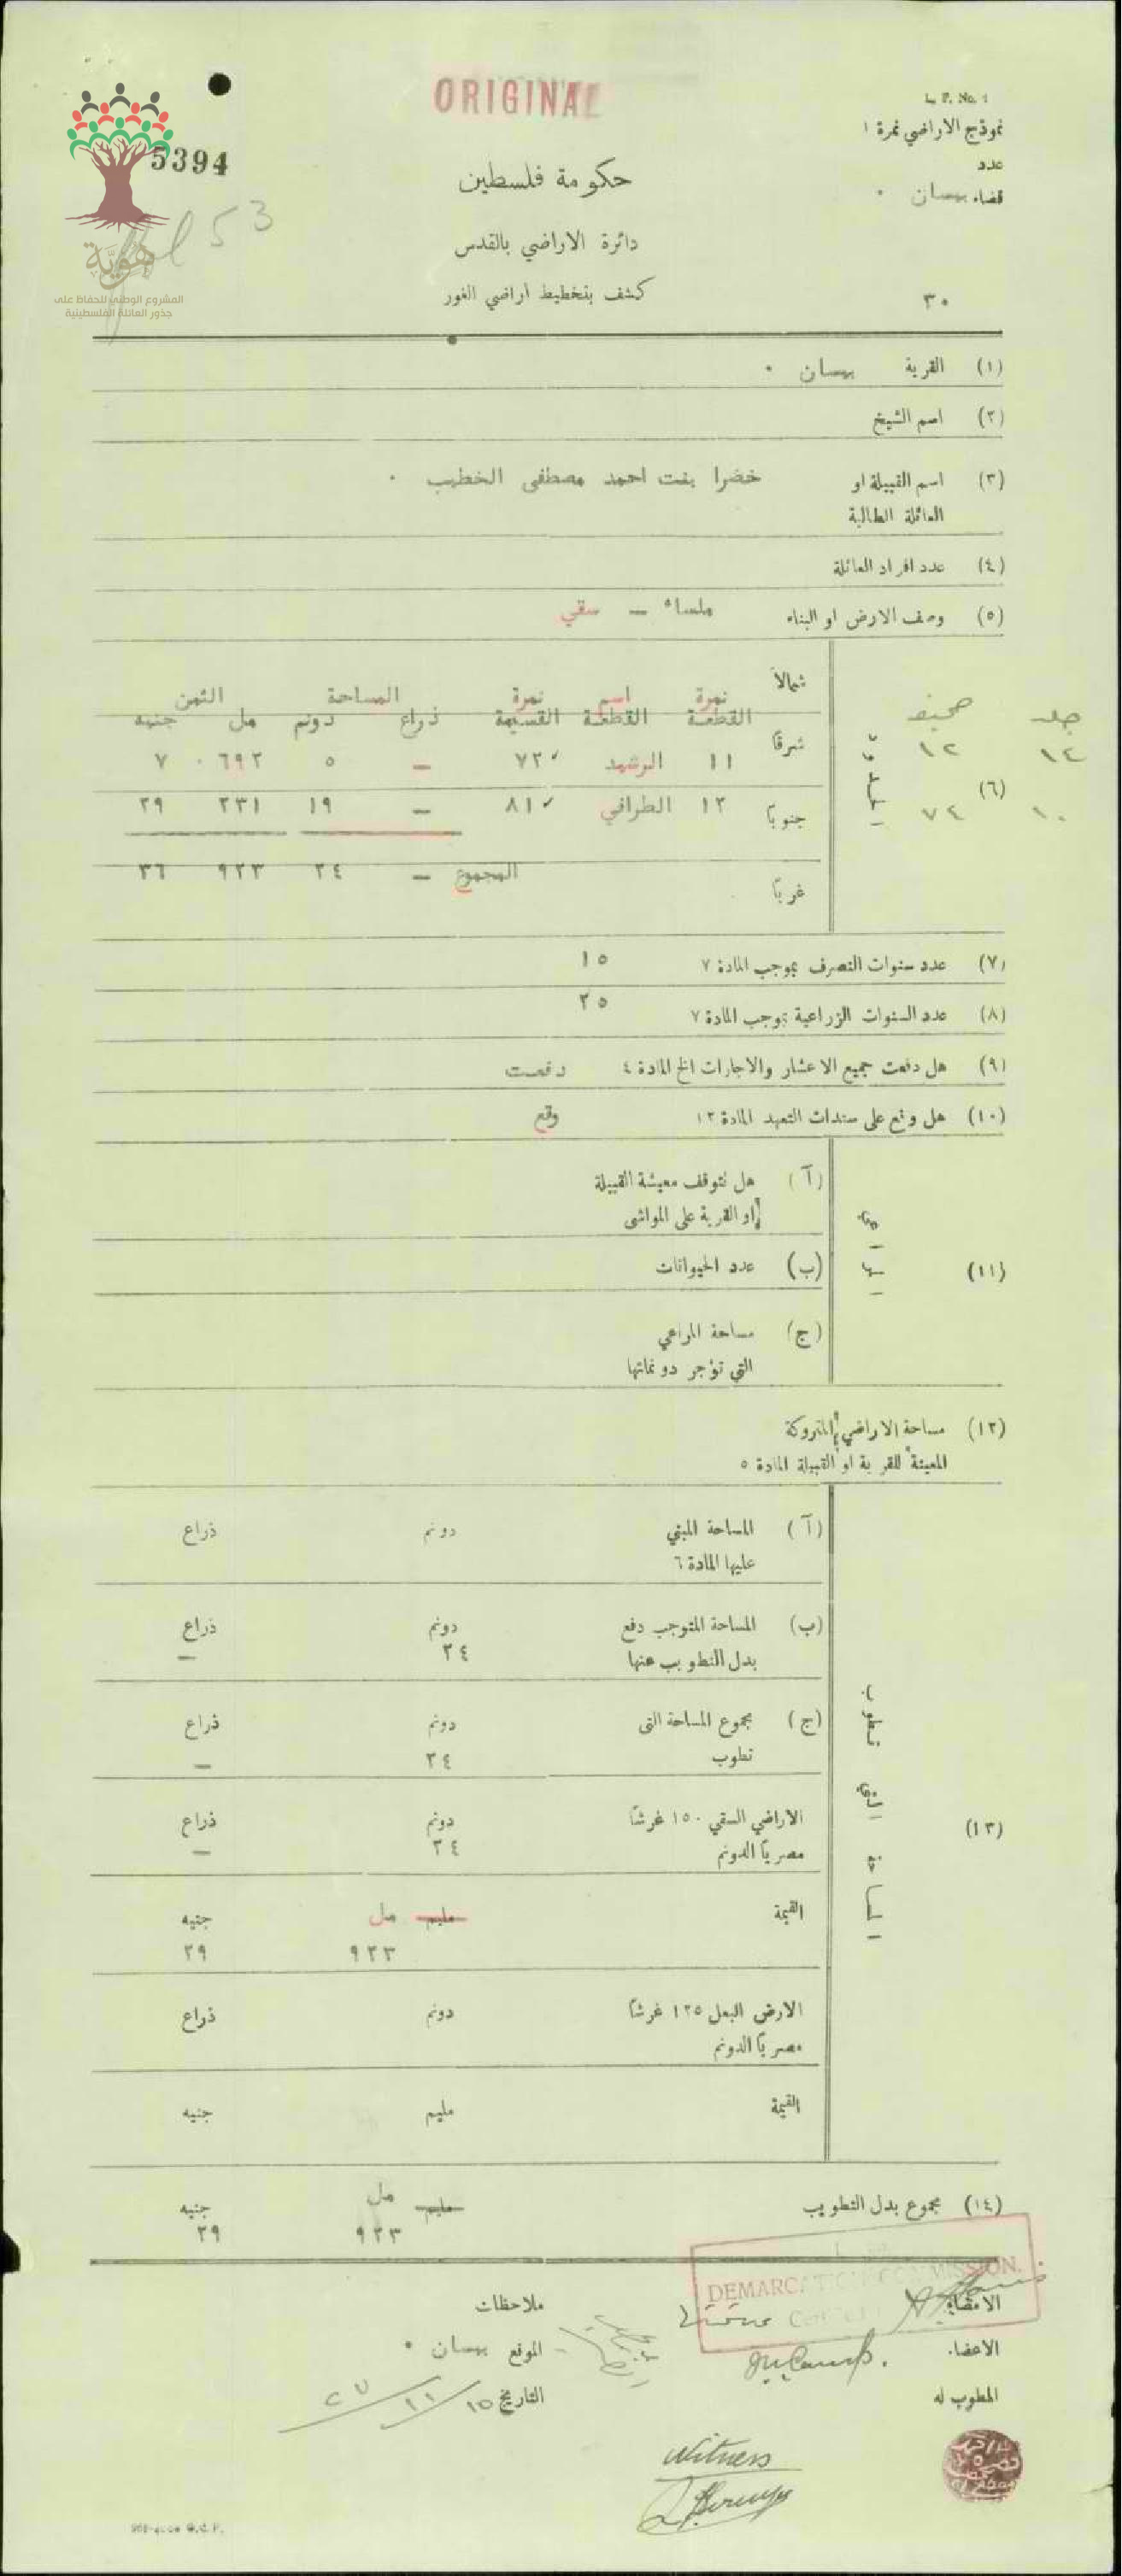 ORIGINAL
L. F. No. 1
نموذج الاراضي نمرة ١
عدد
قضاء بيسان ٠
5394
53
حكومة فلسطين
دائرة الاراضي بالقدس
كشف بتخطيط اراضي الغور
٣٠
هَوِيَّة
المشروع الوطني للحفاظ على
جذور العائلة الفلسطينية
(١) القرية بيسان ٠
(٢) اسم الشيخ
(٣) اسم القبيلة او خضرا بنت احمد مصطفى الخطيب ٠
العائلة الطالبة
(٤) عدد افراد العائلة
(٥) وصف الارض او البناء ملساء — سقي
(٦) الحدود
شمالاً
شرقاً
جنوباً
غرباً
جلد صحيفة
١٤ ١٢
١٠ ٧٤
نمرة اسم نمرة المساحة الثمن
القطعة القطعة القسيمة ذراع دونم مل جنيه
١١ الرشيد ٧٢ — ٥ ٦٩٢ ٧
١٢ الطرافي ٨١ — ١٩ ٢٣١ ٢٩
المجموع — ٢٤ ٩٢٣ ٣٦
(٧) عدد سنوات التصرف بموجب المادة ٧ ١٥
(٨) عدد السنوات الزراعية بموجب المادة ٧ ٢٥
(٩) هل دفعت جميع الاعشار والاجارات الخ المادة ٤ دفعت
(١٠) هل وقع على سندات التعهد المادة ١٢ وقع
(١١) المراعي
(آ) هل تتوقف معيشة القبيلة
او القرية على المواشي
(ب) عدد الحيوانات
(ج) مساحة المراعي
التي تؤجر دونماتها
(١٢) مساحة الاراضي المتروكة
المعينة للقرية او القبيلة المادة ٥
(١٣) المساحة التي تطوب
(آ) المساحة المبني دونم ذراع
عليها المادة ٦
(ب) المساحة المتوجب دفع دونم ذراع
بدل التطويب عنها ٢٤ —
(ج) مجموع المساحة التي دونم ذراع
تطوب ٢٤ —
الاراضي السقي ١٥٠ غرشاً دونم ذراع
مصرياً الدونم ٢٤ —
القيمة مليم مل جنيه
٩٢٣ ٣٩
الارض البعل ١٢٥ غرشاً دونم ذراع
مصرياً الدونم
القيمة مليم جنيه
(١٤) مجموع بدل التطويب مليم مل جنيه
٩٢٣ ٣٩
DEMARCATION COMMISSION.
الامضاء
ملاحظات
الاعضاء
الموقع بيسان ٠
المطوب له
التاريخ ١٥/١١/٢٧
Witness